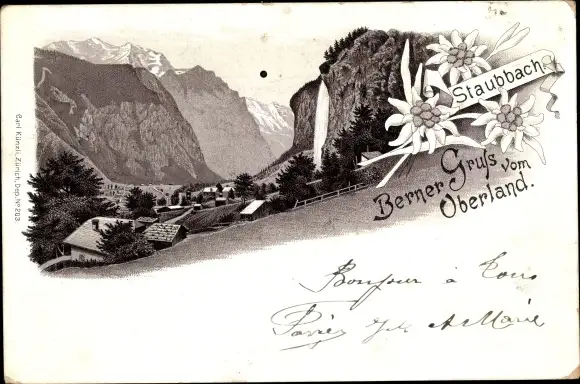 Staubbach
Gruſs vom
Berner Oberland.
Carl Künzli, Zürich, Dep. No 203
Bonjour à Tous